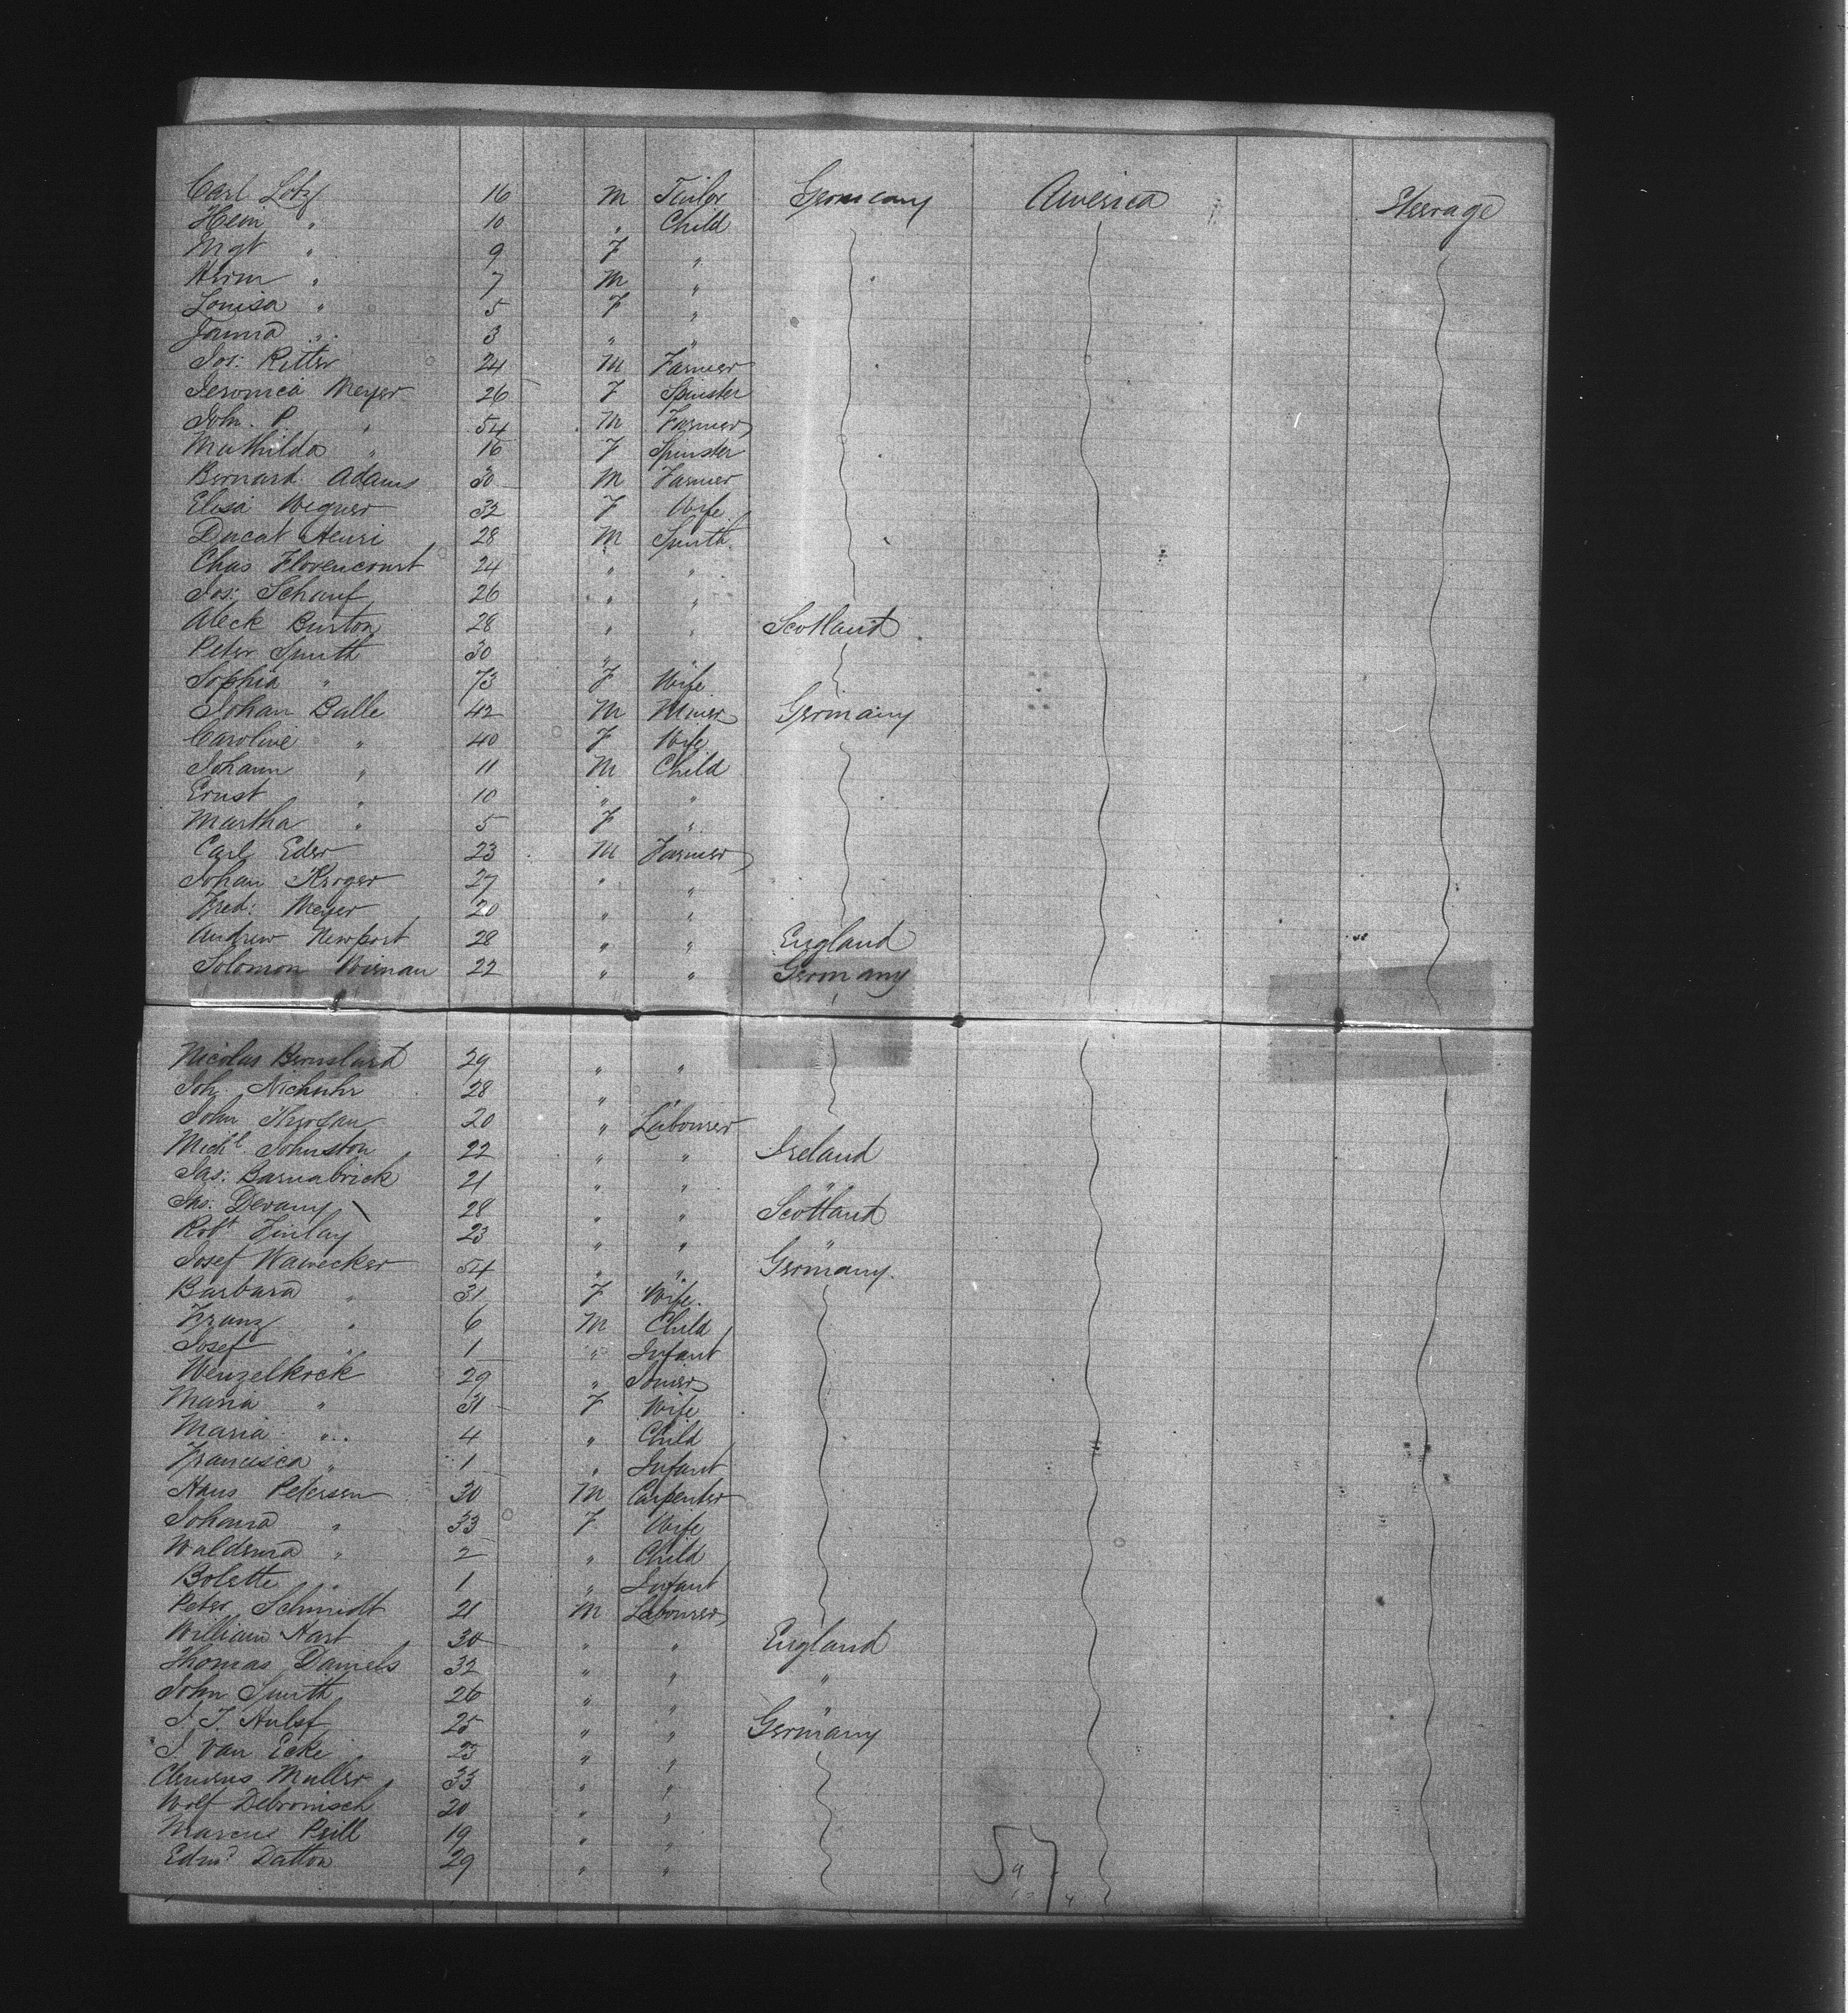 Carl Lotz 16 M Tailor Germany America Steerage
Hein " 10 " Child
Mgt " 9 F "
Herm " 7 M "
Louisa " 5 F "
" 3 " "
Jos: Ritter 24 M Farmer
Meyer 26 F Spinster
Joh. P. " 54 M Farmer
Mathilda " 16 F Spinster
Bernard Adams 30 M Farmer
Elisa Wegner 32 F Wife
Ducat Henri 28 M Smith
Chas Florencourt 24 " "
Jos: Schauf 26 " "
Aleck Burton 28 " " Scotland
Peter Smith 30 " "
Sophia " 73 F Wife
Johan Balle 42 M Miner Germany
Caroline " 40 F Wife
Johann " 11 M Child
Ernst " 10 " "
Martha " 5 F "
Carl Eder 23 M Farmer
Johan Kroger 27 " "
Fred: Meyer 20 " "
Andrew Newport 28 " " England
Solomon 22 " " Germany
Nicolas 29 " "
Joh. 28 " "
John 20 " Labourer
Michl Johnston 22 " " Ireland
Jas: Barnabrick 21 " " "
Jas: Devany 28 " " Scotland
Robt Finlay 23 " " "
Josef Wawecker 54 " " Germany
Barbara " 31 F Wife
Franz " 6 M Child
Josef " 1 " Infant
Wenzelkrck 29 " Joiner
Maria " 31 F Wife
Maria " 4 " Child
Francisca " 1 " Infant
Hans Petersen 30 M Carpenter
Johana " 33 F Wife
" 2 " Child
Bolette " 1 " Infant
Peter Schmidt 21 M Labourer
William Hart 30 " " England
Thomas Daniels 32 " " "
John Smith 26 " " "
J. J. Hulsf 25 " " Germany
J. Van Ecke 23 " "
Clemens Muller 33 " "
Wolf Debronisch 20 " "
Marcus Prill 19 " "
Edmd Datton 29 " "
57